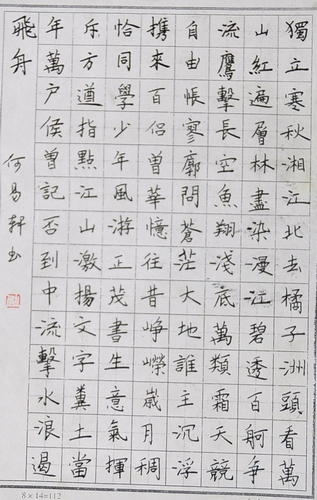 獨立寒秋湘江北去橘子洲頭看萬
山紅遍層林盡染漫江碧透百舸爭
流鷹擊長空魚翔淺底萬類霜天競
自由帳寥廓問蒼茫大地誰主沉浮
攜來百侶曾華憶往昔崢嶸歲月稠
恰同學少年風游正茂書生意氣揮
斥方遒指點江山激揚文字糞土當
年萬戶侯曾記否到中流擊水浪遏
飛舟
何易軒书
8×14=112